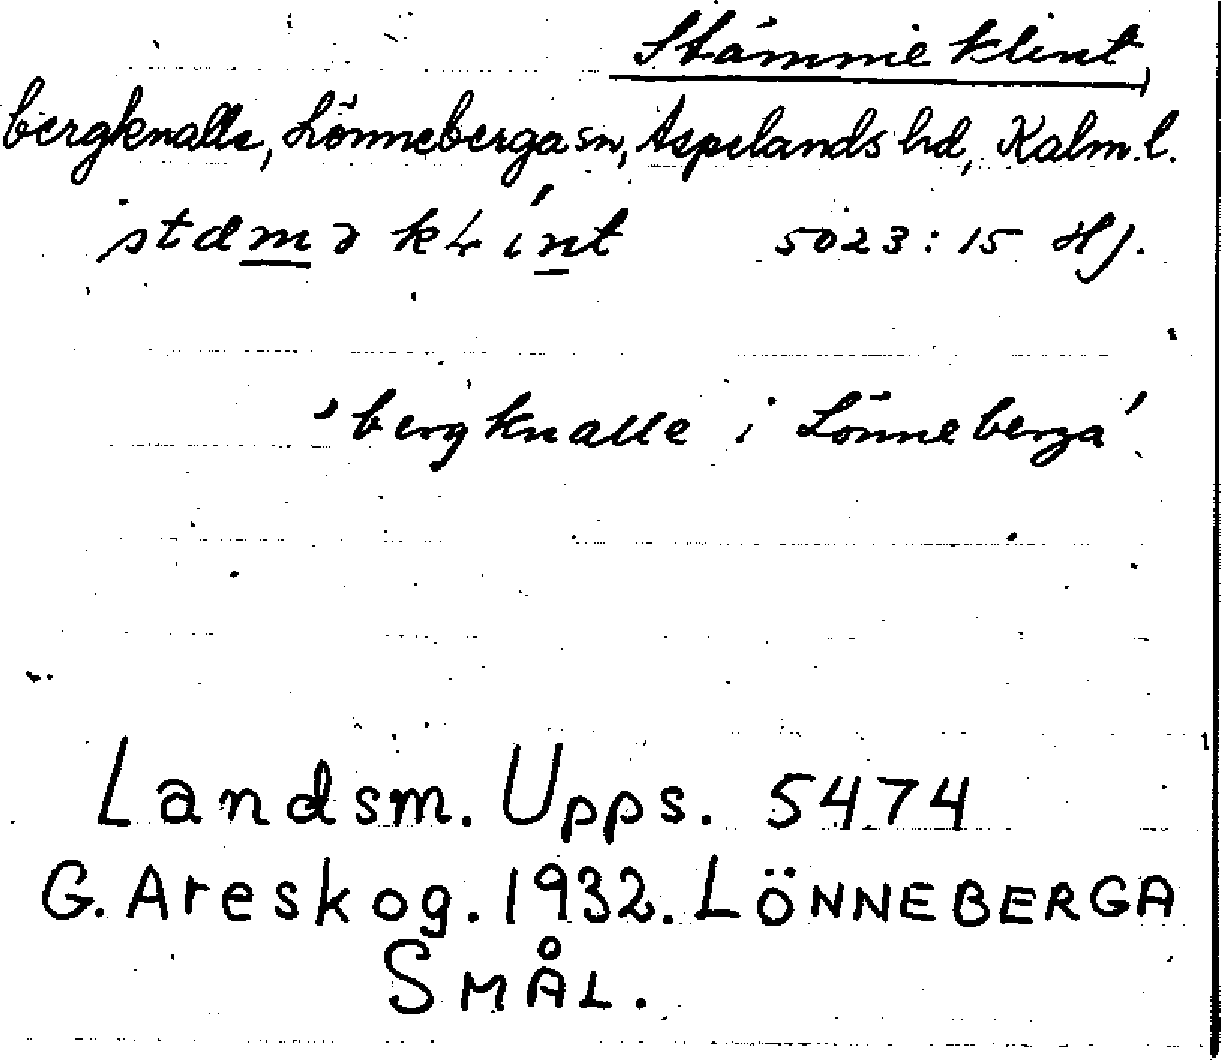 Stämme klint
bergknalle, Lönneberga sn, Aspelands hd, Kalm. l.
stæmə kʟínt 5023:15 Hj.
'bergknalle i Lönneberga'
Landsm. Upps. 5474
G. Areskog. 1932. LÖNNEBERGA
SMÅL.